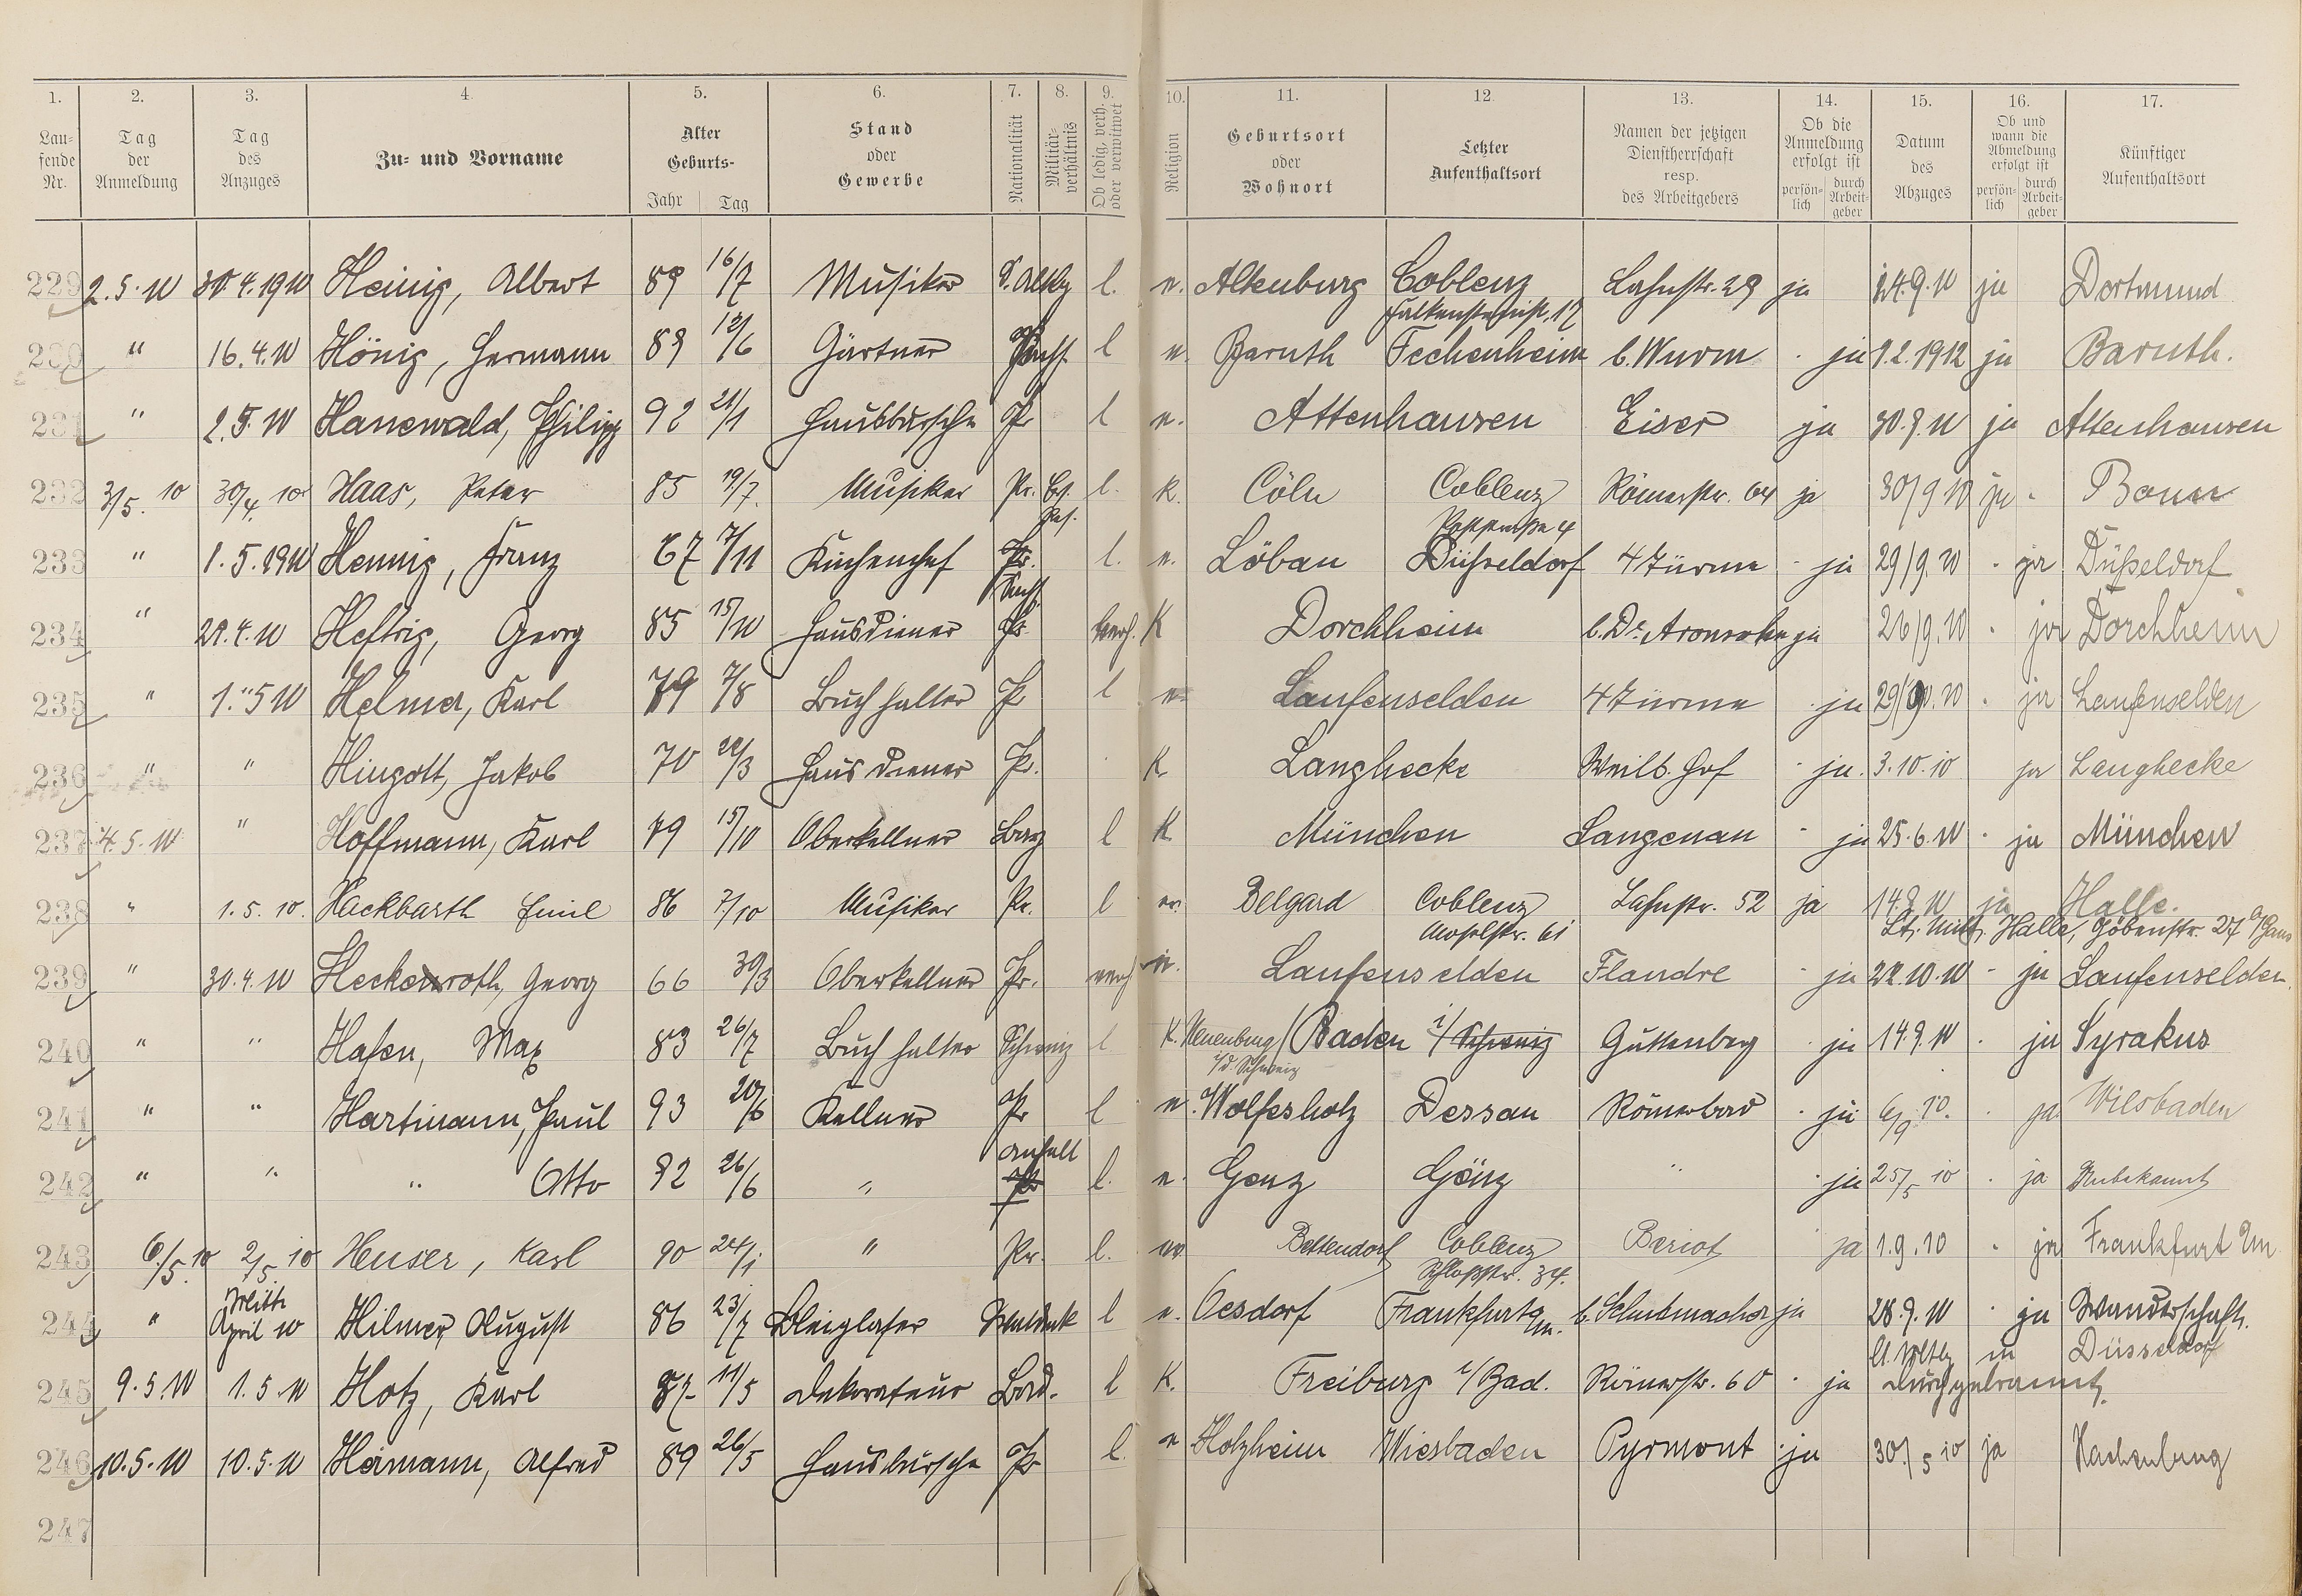 1. 2. 3. 4. 5. 6. 7. 8. 9. 10. 11. 12. 13. 14. 15. 16. 17.
Lau-fende Nr. Tag der Anmeldung Tag des Anzuges Zu- und Vorname Alter Geburts- Jahr Tag Stand oder Gewerbe Nationalität Militär-verhältnis Ob ledig, verh. oder verwitwet Religion Geburtsort oder Wohnort Letzter Aufenthaltsort Namen der jetzigen Dienstherrschaft resp. des Arbeitgebers Ob die Anmeldung erfolgt ist persön-lich durch Arbeit-geber Datum des Abzuges Ob und wann die Abmeldung erfolgt ist persön-lich durch Arbeit-geber Künftiger Aufenthaltsort
229 2.5.10 30.4.1910 Heinig, Albert 89 16/7 Musiker S. Altbg l. e. Altenburg Coblenz Lahnstr. 29 ja 24.9.10 ja Dortmund
Falkensteinstr. 17
230 " 16.4.10 Hönig, Hermann 89 12/6 Gärtner l e. Baruth Fechenheim b. Wurm ja 1.2.1912 ja Baruth.
231 " 2.5.10 Hanewald, Philipp 92 21/1 Hausbursche Pr l e. Attenhausen Eiser ja 30.9.10 ja Attenhausen
232 3/5. 10 30/4. 10 Haas, Peter 85 19/7. Musiker Pr. l. K. Cöln Coblenz Römerstr. 64 ja 30/9 10 ja Bonn
233 " 1.5.1910 Hennig, Franz 67 7/11 Küchenchef Pr. l. e. Löbau Düsseldorf 4 Türme ja 29/9.10 ja Düsseldorf
Sachs
234 " 29.4.10 Heftrig, Georg 85 15/10 Hausdiener Pr. verh. K Dorchheim b. Dr. Aronsohn ja 26/9.10 ja Dorchheim
235 " 1.5 10 Helmer, Karl 79 7/8 Buchhalter Pr l e. Laufenselden 4 Türme ja 29/9.10 ja Laufenselden
236 " " Hingott, Jakob 70 22/3 Hausdiener Pr. K Langhecke Weilb. Hof ja. 3.10.10 ja Langhecke
237 4.5.10 " Hoffmann, Karl 79 15/10 Oberkellner Bay l K München Langenau ja 25.6.10 ja München
238 " 1.5.10. Hackbarth Emil 86 7/10 Musiker Pr. l ev. Belgard Coblenz Lahnstr. 52 ja 14.9.10 ja Halle.
Moselstr. 61 Lt. Mitt. Halle, Göbenstr. 27
239 " 30.4.10 Heckenroth, Georg 66 30/3 Oberkellner Pr. verh e. Laufenselden Flandre ja 22.10.10 ja Laufenselden.
240 " " Hafen, Max 83 26/7 Buchhalter Schweiz l K. Neuenburg / Baden i/ Schweiz Guttenberg ja 14.9.10 ja Syrakus
i/d. Schweiz
241 " " Hartmann, Paul 93 20/6 Kellner Pr l e. Wolfesholz Dessau Römerbad ja 6/9 10. ja Wiesbaden
Anhalt
242 " " " Otto 92 26/6 " Pr l. e. Genz Görz " ja 25/5 10 ja Unbekannt
243 6./5. 10 2/5. 10 Heuser, Karl 90 24/1 " Pr. l. ev Bettendorf Coblenz Beriot ja 1.9.10 ja Frankfurt Am
Schloßstr. 34.
244 " Mitte April 10 Hilmer, August 86 23/7 Bleiglaser Waldeck l e. Oesdorf Frankfurt a m. b. Schuhmacher ja 28.9.10 ja Wanderschaft.
in Düsseldorf
245 9.5.10 1.5.10 Hotz, Karl 87 11/5 Dekorateur Bad. l K. Freiburg i/Bad. Römerstr. 60 ja Durchgebrannt.
246 10.5.10 10.5.10 Heimann, Alfred 89 26/5 Hausbursche Pr l. e Holzheim Wiesbaden Pyrmont ja 30/5 10 ja Hachenburg
247